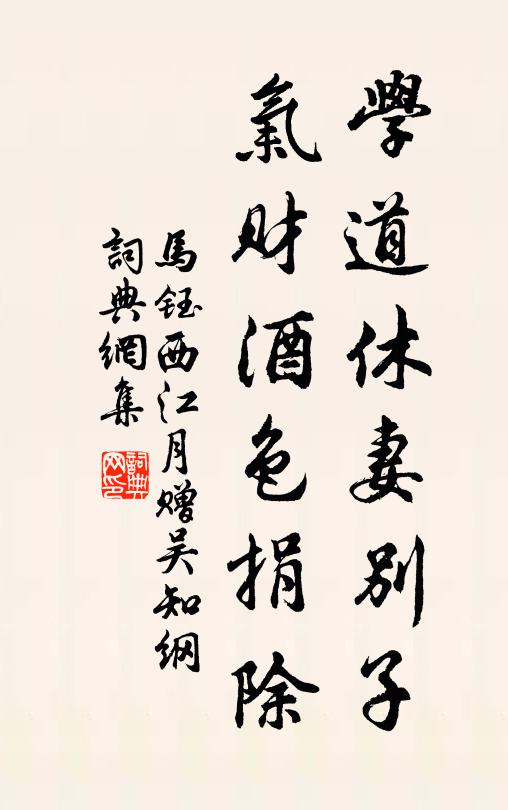 學道休妻別子
氣財酒色捐除
馬鈺西江月赠吴知纲
詞典網集
詞典网印